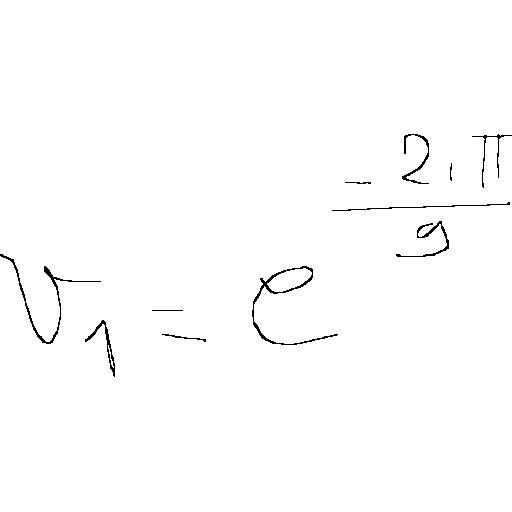 v_1 = e^{\frac{-2 i \pi}{9}}